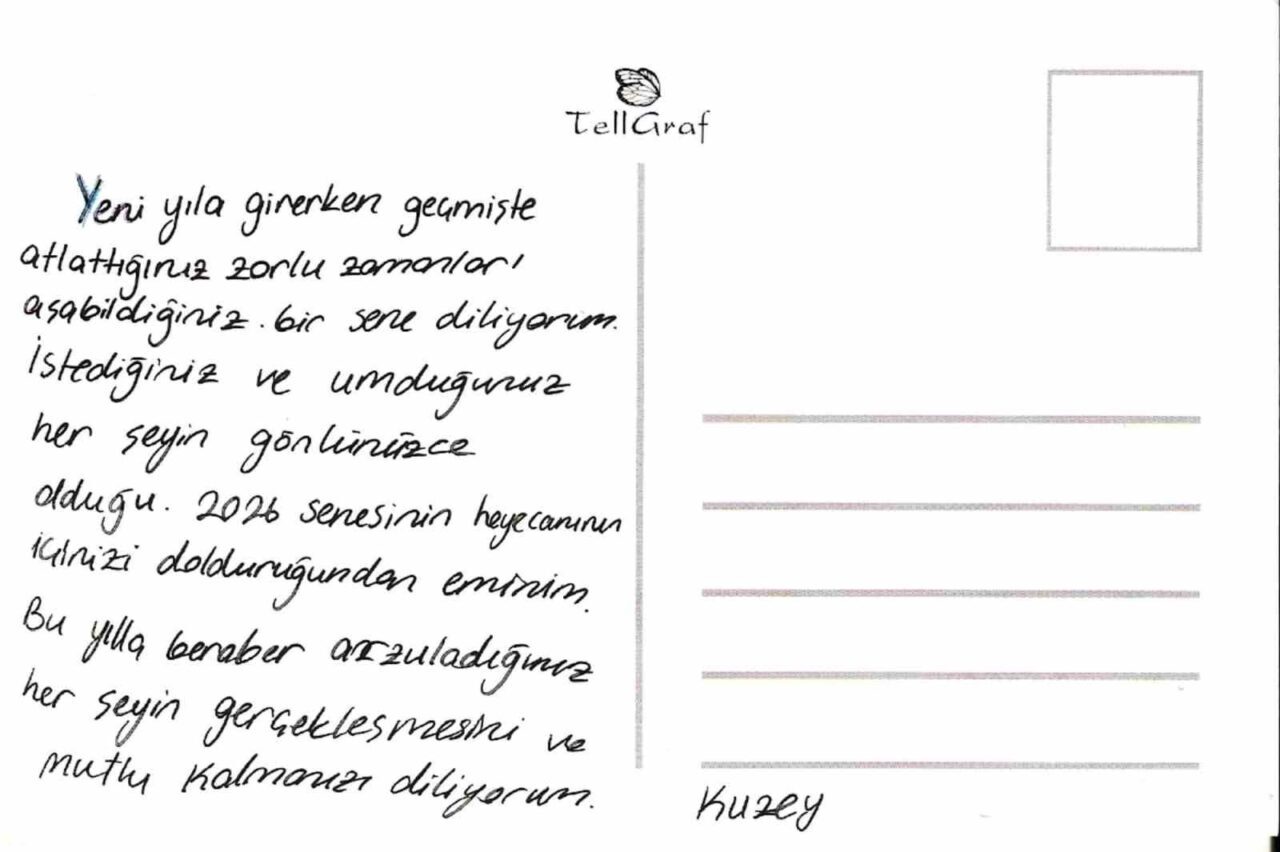 TellGraf
Yeni yıla girerken geçmişte
atlattığınız zorlu zamanları
aşabildiğiniz. bir sene diliyorum.
İstediğiniz ve umduğunuz
her şeyin gönlünüzce
olduğu. 2026 senesinin heyecanının
içinizi doldurduğundan eminim.
Bu yılla beraber arzuladığınız
her şeyin gerçekleşmesini ve
mutlu kalmanızı diliyorum.
Kuzey